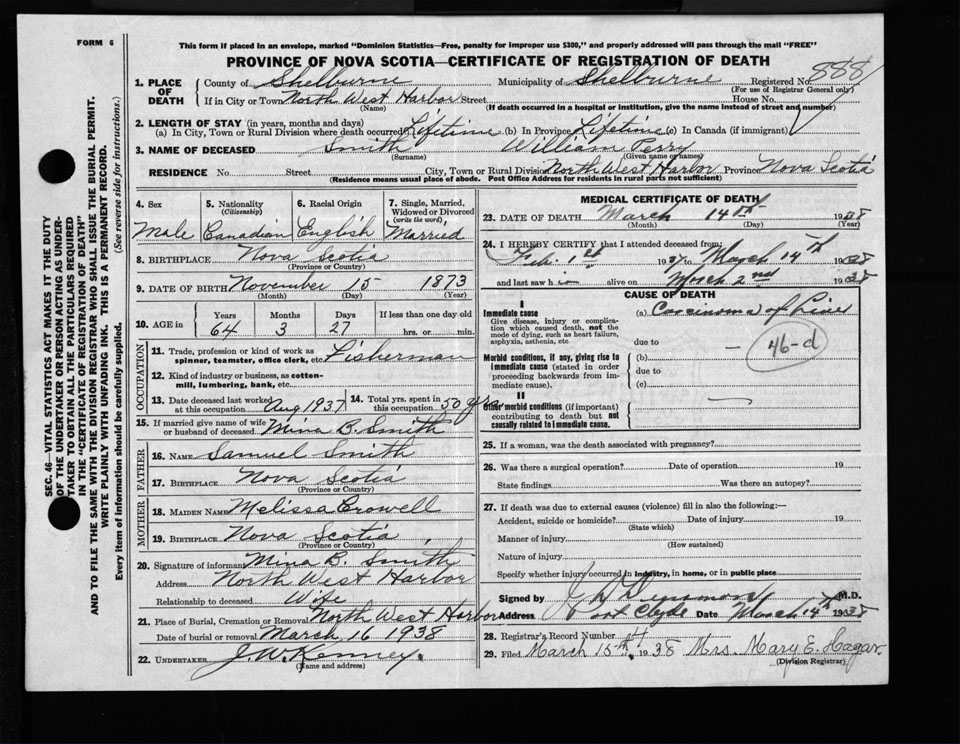 FORM 6
This form if placed in an envelope, marked "Dominion Statistics—Free, penalty for improper use $300," and properly addressed will pass through the mail "FREE"
PROVINCE OF NOVA SCOTIA—CERTIFICATE OF REGISTRATION OF DEATH
SEC. 46—VITAL STATISTICS ACT MAKES IT THE DUTY
OF THE UNDERTAKER OR PERSON ACTING AS UNDER-
TAKER TO OBTAIN ALL THE PARTICULARS REQUIRED
IN THE "CERTIFICATE OF REGISTRATION OF DEATH"
AND TO FILE THE SAME WITH THE DIVISION REGISTRAR WHO SHALL ISSUE THE BURIAL PERMIT.
WRITE PLAINLY WITH UNFADING INK. THIS IS A PERMANENT RECORD.
Every item of information should be carefully supplied. (See reverse side for instructions.)
1. PLACE OF DEATH
County of Shelburne Municipality of Shelburne Registered No. 888
(For use of Registrar General only)
If in City or Town North West Harbor Street House No.
(Name) (If death occurred in a hospital or institution, give the name instead of street and number)
2. LENGTH OF STAY (in years, months and days)
(a) In City, Town or Rural Division where death occurred Lifetime (b) In Province Lifetime (c) In Canada (if immigrant)
3. NAME OF DECEASED Smith William Perry
(Surname) (Given name or names)
RESIDENCE No. Street City, Town or Rural Division North West Harbor Province Nova Scotia
(Residence means usual place of abode. Post Office Address for residents in rural parts not sufficient)
4. Sex
Male
5. Nationality
(Citizenship)
Canadian
6. Racial Origin
English
7. Single, Married,
Widowed or Divorced
(write the word)
Married
8. BIRTHPLACE Nova Scotia
(Province or Country)
9. DATE OF BIRTH November 15 1873
(Month) (Day) (Year)
10. AGE in
Years Months Days If less than one day old
64 3 27 hrs. or min.
OCCUPATION
11. Trade, profession or kind of work as
spinner, teamster, office clerk, etc. Fisherman
12. Kind of industry or business, as cotton-
mill, lumbering, bank, etc.
13. Date deceased last worked
at this occupation Aug 1937
14. Total yrs. spent in
this occupation 50 yrs
15. If married give name of wife
or husband of deceased Mina B. Smith
FATHER
16. NAME Samuel Smith
17. BIRTHPLACE Nova Scotia
(Province or Country)
MOTHER
18. MAIDEN NAME Melissa Crowell
19. BIRTHPLACE Nova Scotia
(Province or Country)
20. Signature of informant Mina B. Smith
Address North West Harbor
Relationship to deceased Wife
21. Place of Burial, Cremation or Removal North West Harbor
Date of burial or removal March 16 1938
22. UNDERTAKER J. W. Kenney.
(Name and address)
MEDICAL CERTIFICATE OF DEATH
23. DATE OF DEATH March 14th 1938
(Month) (Day) (Year)
24. I HEREBY CERTIFY that I attended deceased from:
Feb. 1st 1937 to March 14th 1938
and last saw him alive on March 2nd 1938
CAUSE OF DEATH
I
Immediate cause
Give disease, injury or complica-
tion which caused death, not the
mode of dying, such as heart failure,
asphyxia, asthenia, etc
(a) Carcinoma of
due to
46-d
Morbid conditions, if any, giving rise to
immediate cause (stated in order
proceeding backwards from im-
mediate cause).
(b)
due to
(c)
II
Other morbid conditions (if important)
contributing to death but not
causally related to immediate cause.
25. If a woman, was the death associated with pregnancy?
26. Was there a surgical operation? Date of operation 19
State findings Was there an autopsy?
27. If death was due to external causes (violence) fill in also the following:—
Accident, suicide or homicide? Date of injury 19
(State which)
Manner of injury
(How sustained)
Nature of injury
Specify whether injury occurred in industry, in home, or in public place
Signed by M.D.
Address Port Clyde Date March 14th 1938
28. Registrar's Record Number 14
29. Filed March 15th, 1938 Mrs. Mary E. Hagar.
(Division Registrar)